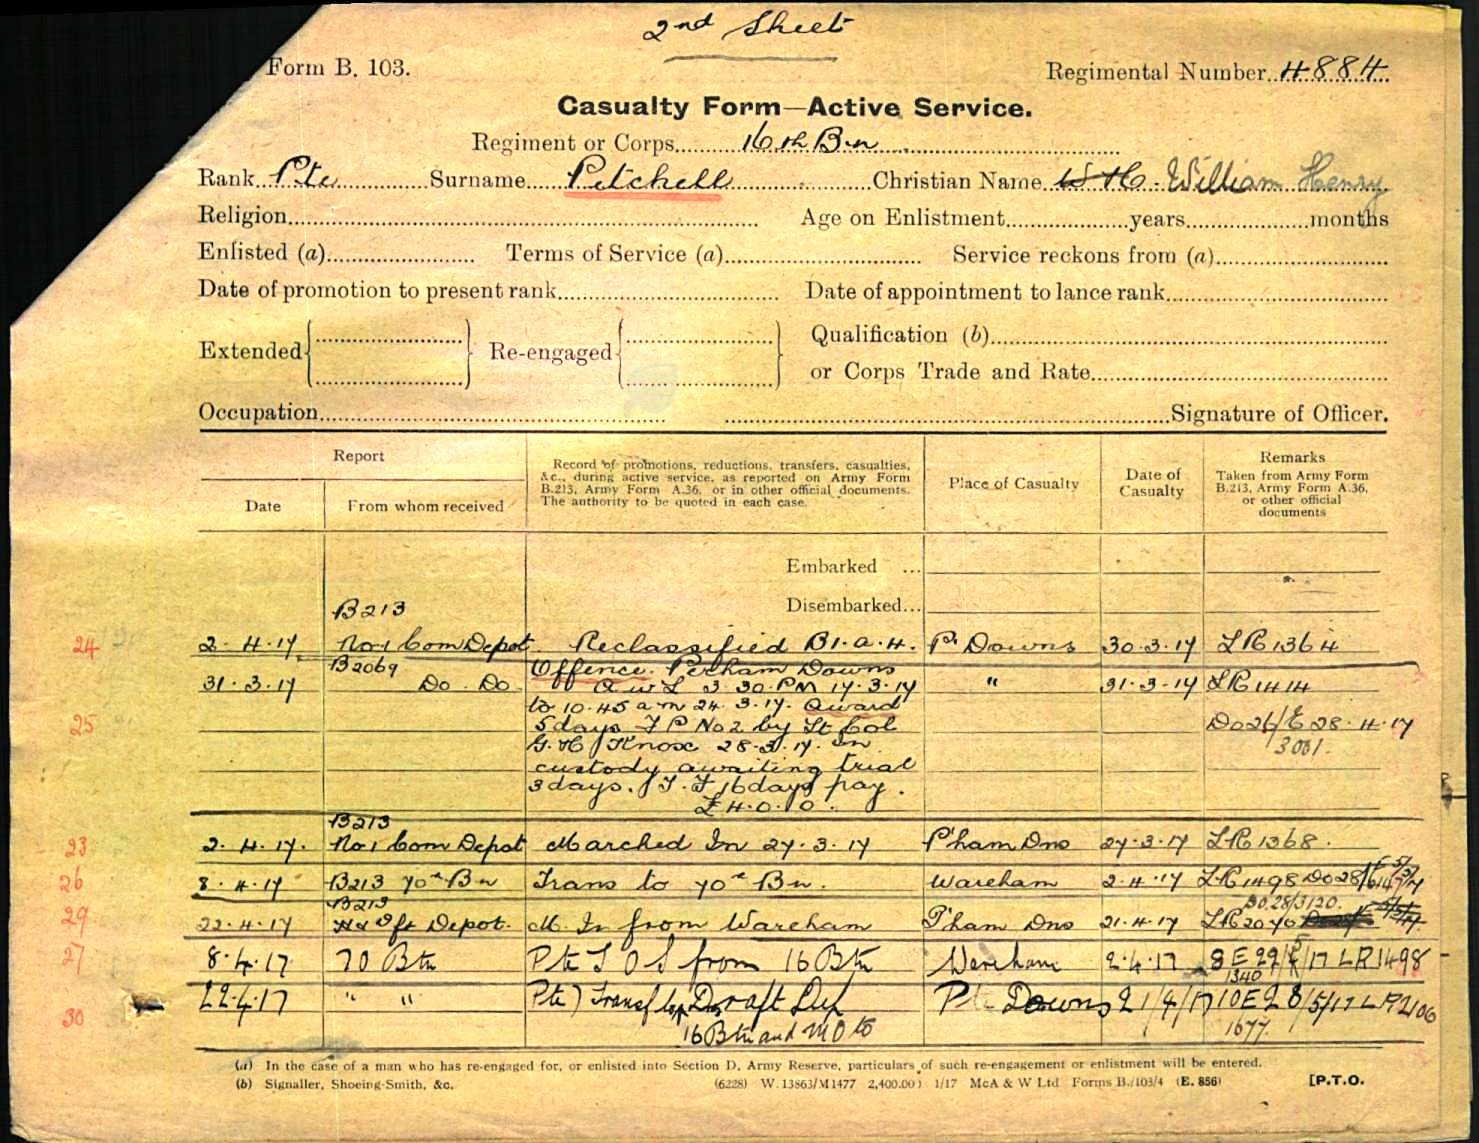 2nd Sheet
Form B. 103.
Regimental Number 4884
Casualty Form—Active Service.
Regiment or Corps 16th Bn
Rank Pte Surname Petchell Christian Name W H. William Henry
Religion Age on Enlistment years months
Enlisted (a) Terms of Service (a) Service reckons from (a)
Date of promotion to present rank Date of appointment to lance rank
Extended Re-engaged Qualification (b)
or Corps Trade and Rate
Occupation Signature of Officer.
Report
Date
From whom received
Record of promotions, reductions, transfers, casualties,
&c., during active service, as reported on Army Form
B.213, Army Form A.36, or in other official documents.
The authority to be quoted in each case.
Place of Casualty
Date of
Casualty
Remarks
Taken from Army Form
B.213, Army Form A.36,
or other official
documents
Embarked ...
Disembarked...
B213
24 2.4.17 No 1 Com Depot Reclassified B1.a.4. P. Downs 30.3.17 LR 1364
B2069 Offence. Perham Downs
31.3.17 Do Do AWL 3.30 PM 17.3.17 " 31.3.17 LR 1414
to 10.45 am 24.3.17. Award
25 5 days F P No 2 by Lt Col Do 26/E 28.4.17
G. H Knox 28.3.17. In 3001.
custody awaiting trial
3 days. T. F 16 days pay.
£4.0.0.
B213
23 2.4.17. No 1 Com Depot Marched In 27.3.17 P'ham Dns 27.3.17 LR 1368.
26 8.4.17 B213 70th Bn Trans to 70th Bn. Wareham 2.4.17 LR 1498 Do 28
B213 Do 28/3120.
29 22.4.17 Depot. M. In from Wareham P'ham Dns 21.4.17 LR 2070
27 8.4.17 70 Btn Pte T O S from 16 Btn Wereham 2.4.17 8 E 29/ /17 LR 1498
1340
30 22.4.17 " " Pte) Transf to Draft Dup P Downs 21/4/17 10 E 28/5/17 LR 2106
16 Btn and M O to 1677.
(a) In the case of a man who has re-engaged for, or enlisted into Section D, Army Reserve, particulars of such re-engagement or enlistment will be entered.
(b) Signaller, Shoeing-Smith, &c. (6228) W.13863/M1477 2,400,00) 1/17 McA & W Ltd Forms B./103/4 (E. 856) [P.T.O.